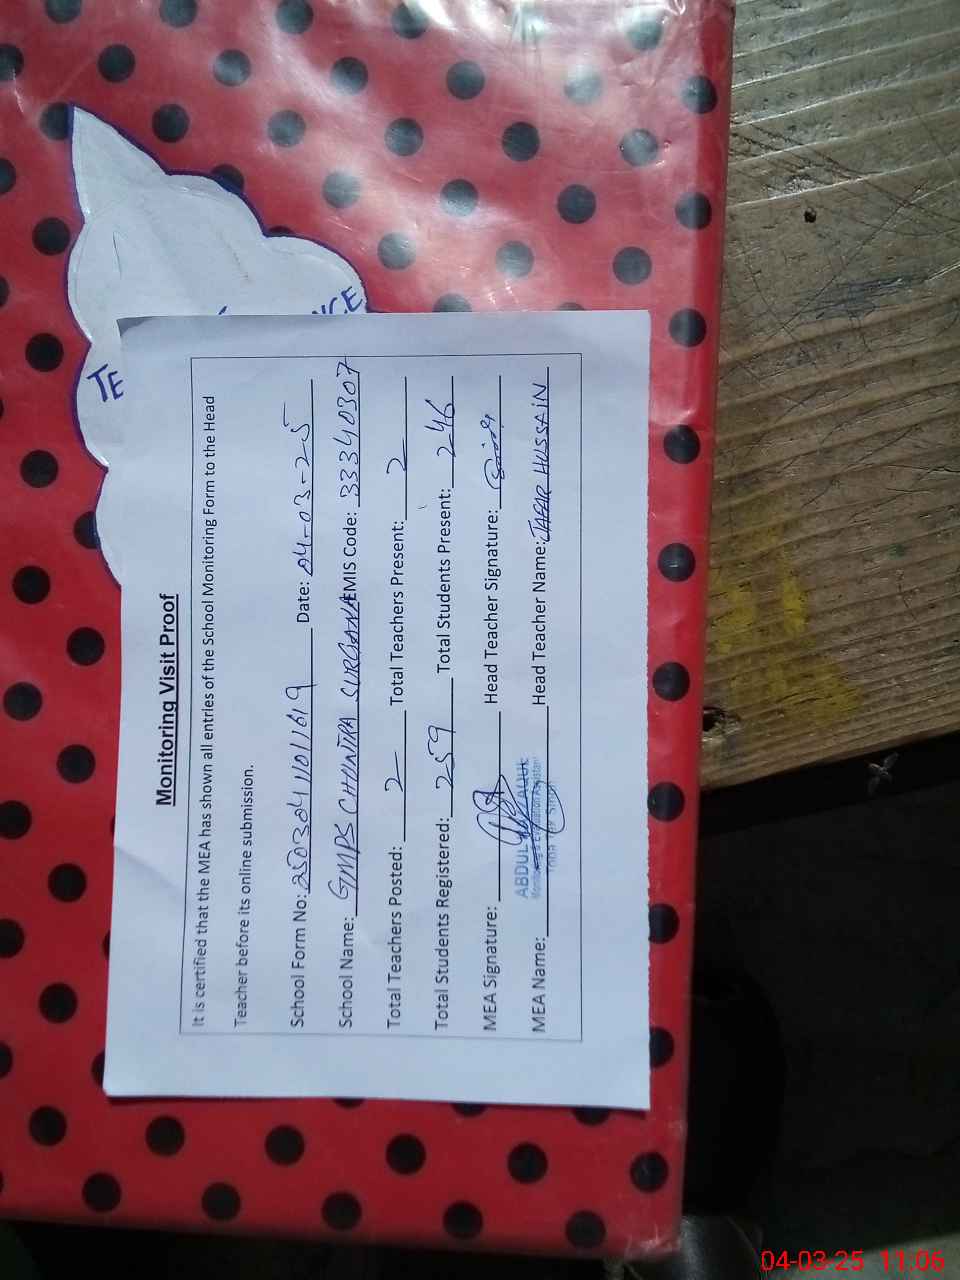 TE
NCE
Monitoring Visit Proof
It is certified that the MEA has shown all entries of the School Monitoring Form to the Head
Teacher before its online submission.
School Form No: 25030411011619 Date: 04-03-25
School Name: GMPS CHUNTRA SURGANA EMIS Code: 33340307
Total Teachers Posted: 2 Total Teachers Present: 2
Total Students Registered: 259 Total Students Present: 246
MEA Signature: Head Teacher Signature:
ABDUL RAZZAQUE
Monitoring & Evaluation Assistant
MEA Name: Head Teacher Name: JAFAR HUSSAIN
04-03-25 11:06